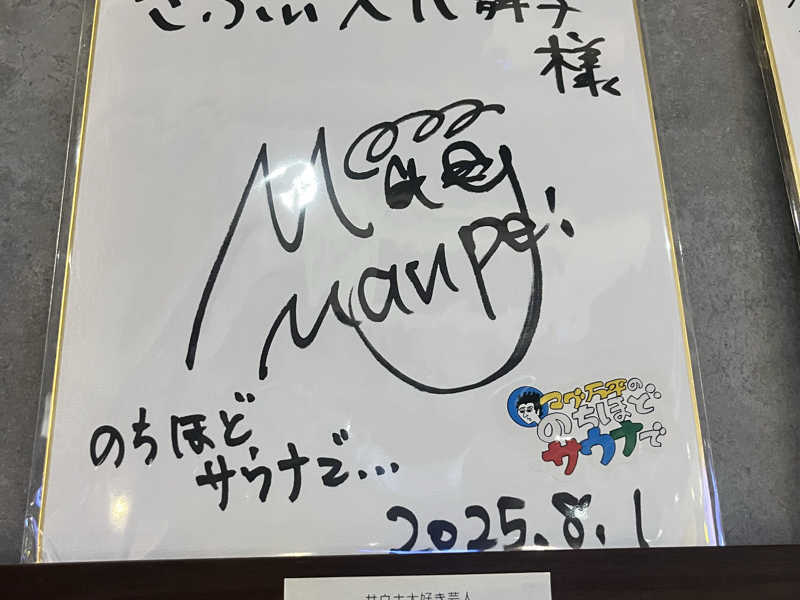 様
Mag
Manpei!
のちほど
サウナで...
マグ万平の
のちほど
サウナで
2025.8.1
サウナ大好き芸人